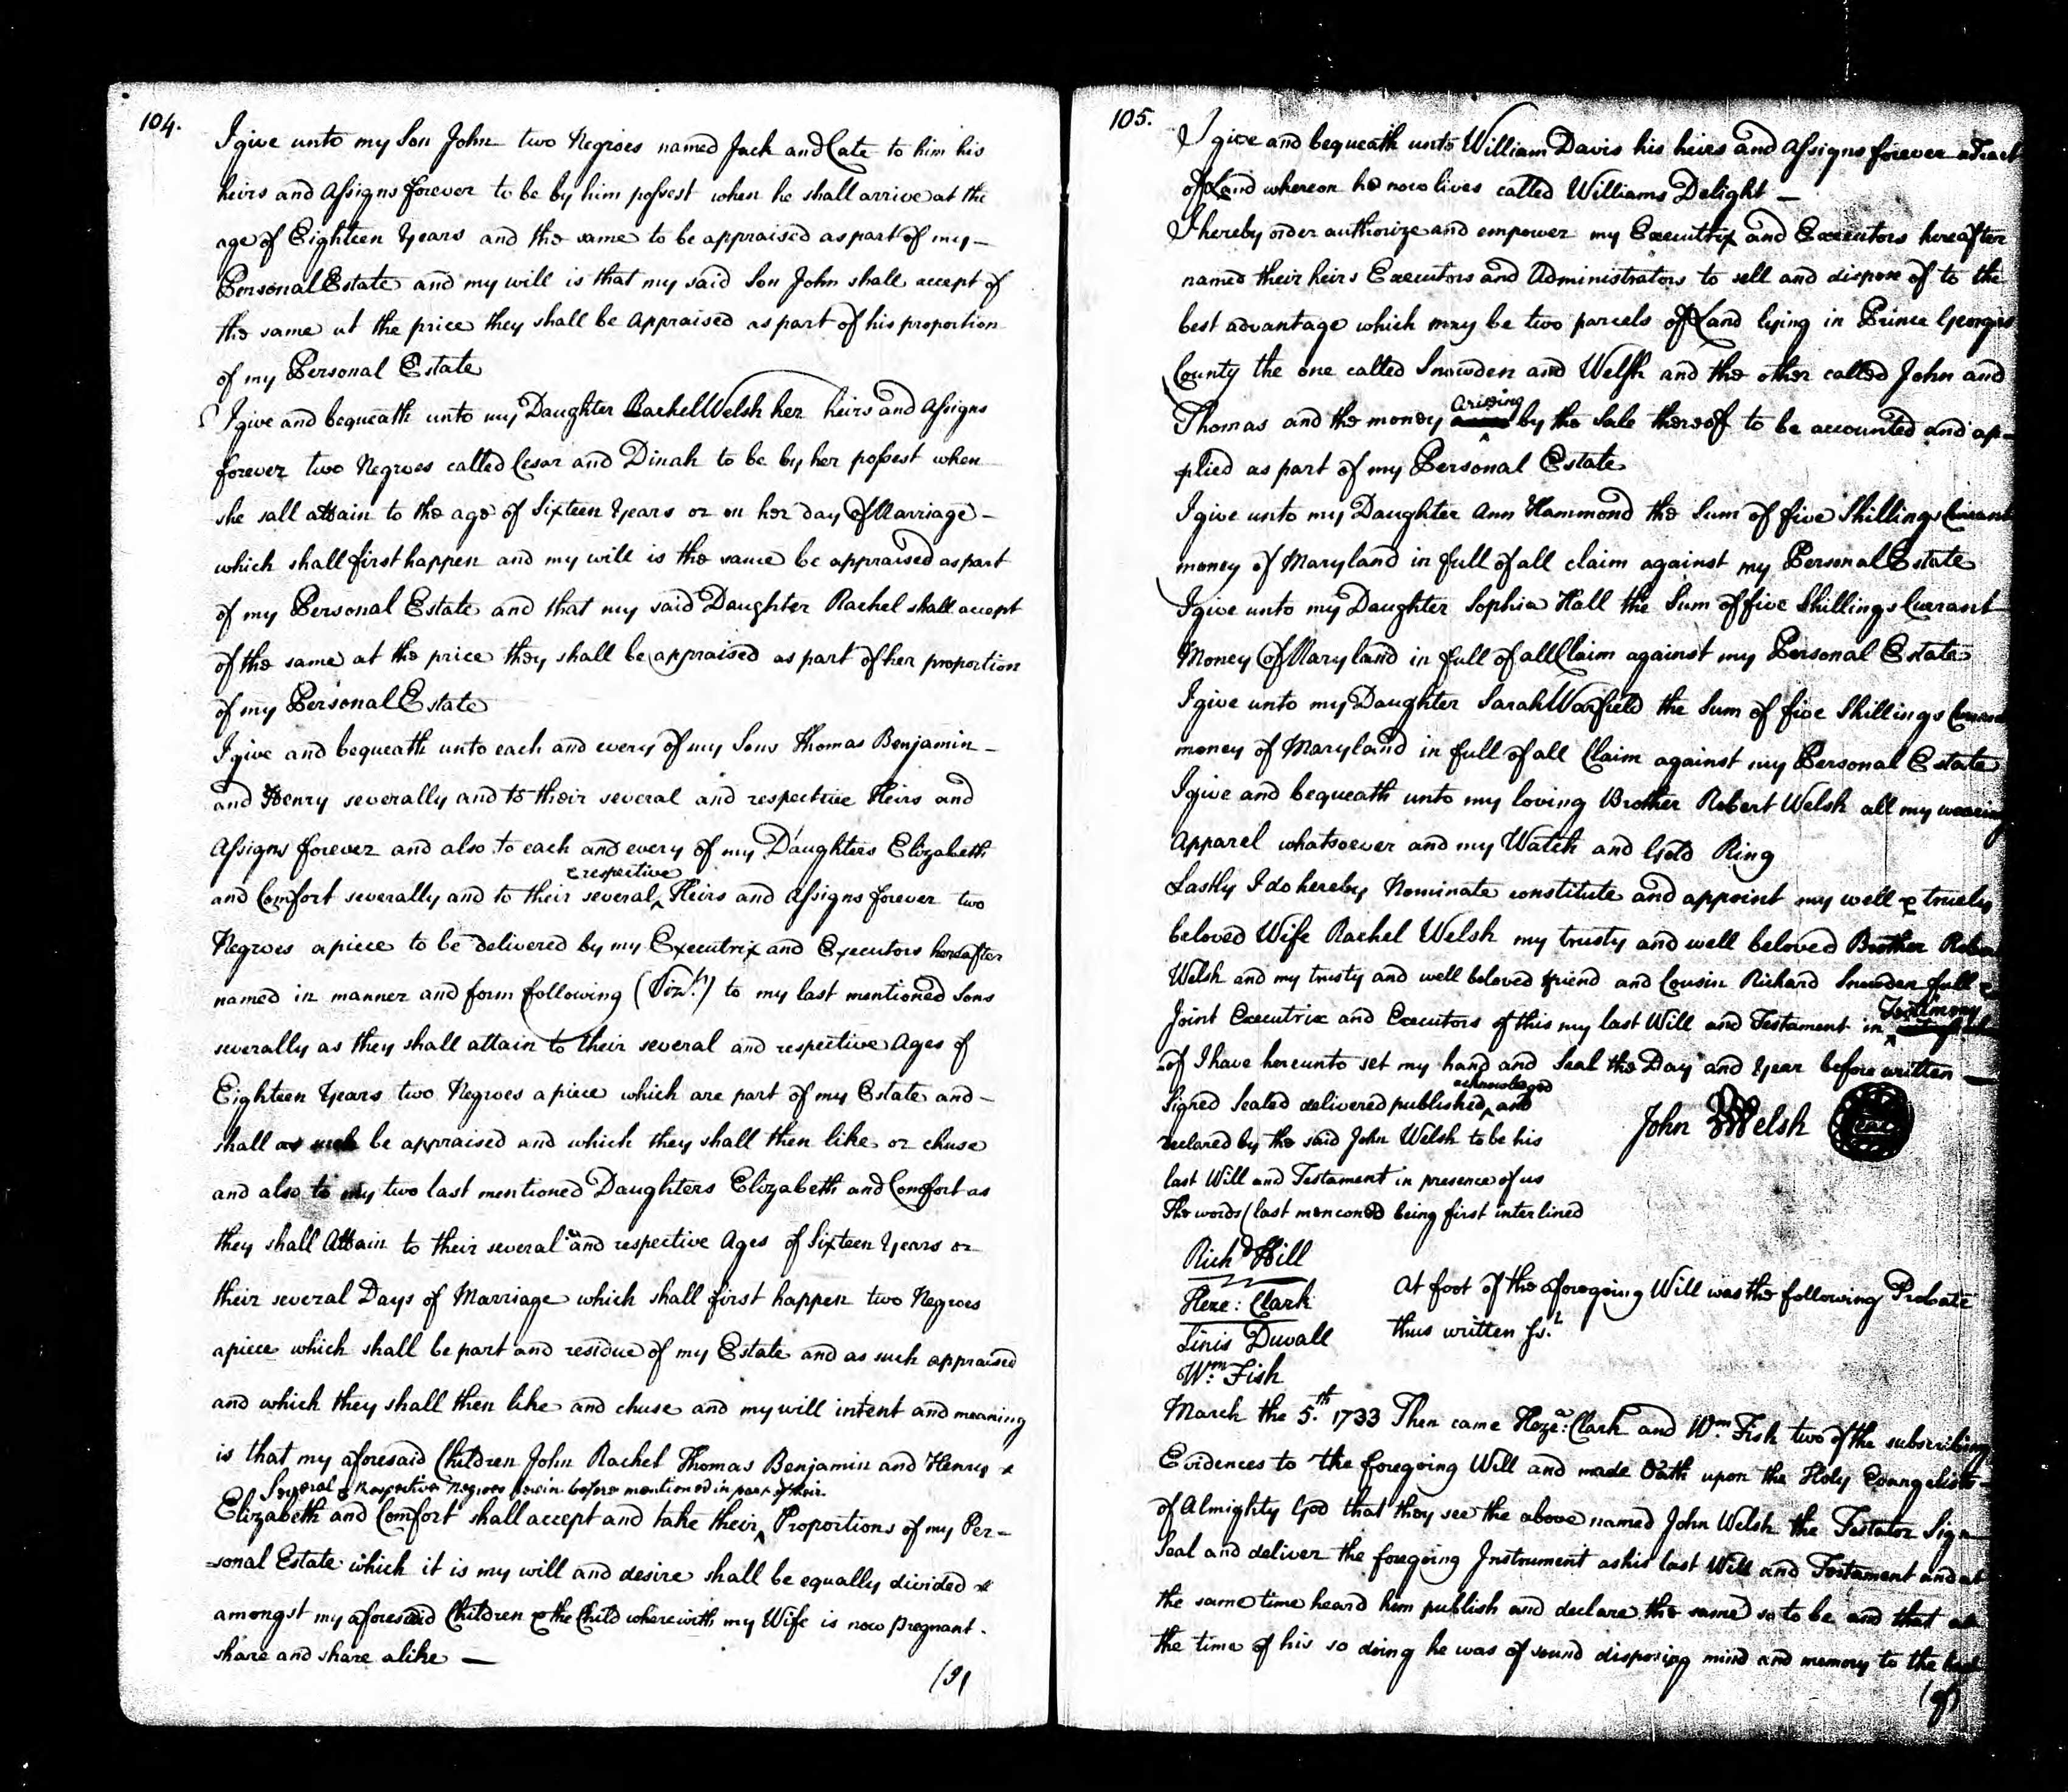 104.
I give unto my Son John two Negroes named Jack and Cate to him his
heirs and Assigns forever to be by him possest when he shall arrive at the
age of Eighteen Years and the same to be appraised as part of my
Personal Estate and my will is that my said Son John shall accept of
the same at the price they shall be Appraised as part of his proportion
of my Personal Estate
I give and bequeath unto my Daughter Rachel Welsh her heirs and Assigns
forever two Negroes called Cesar and Dinah to be by her possest when
she sall attain to the age of Sixteen Years or on her day of Marriage
which shall first happen and my will is the same be appraised as part
of my Personal Estate and that my said Daughter Rachel shall accept
of the same at the price they shall be appraised as part of her proportion
of my Personal Estate
I give and bequeath unto each and every of my Sons Thomas Benjamin
and Henry severally and to their several and respective Heirs and
Assigns forever and also to each and every of my Daughters Elizabeth
& respective
and Comfort severally and to their several Heirs and Assigns forever two
Negroes apiece to be delivered by my Executrix and Executors hereafter
named in manner and form following (Vizt.) to my last mentioned Sons
severally as they shall attain to their several and respective Ages of
Eighteen Years two Negroes apiece which are part of my Estate and
shall as such be appraised and which they shall then like or chuse
and also to my two last mentioned Daughters Elizabeth and Comfort as
they shall Attain to their several and respective Ages of Sixteen Years or
their several Days of Marriage which shall first happen two Negroes
apiece which shall be part and residue of my Estate and as such appraised
and which they shall then like and chuse and my will intent and meaning
is that my aforesaid Children John Rachel Thomas Benjamin and Henry &
Several & Respective Negroes herein before mentioned in part of their
Elizabeth and Comfort shall accept and take their Proportions of my Per-
-sonal Estate which it is my will and desire shall be equally divided
amongst my aforesaid Children & the Child wherewith my Wife is now pregnant
share and share alike
105.
I give and bequeath unto William Davis his heirs and Assigns forever a Tract
of Land whereon he now lives called Williams Delight
I hereby order authorize and empower my Executrix and Executors hereafter
named their heirs Executors and Administrators to sell and dispose of to the
best advantage which may be two parcels of Land lying in Prince Georges
County the one called Snowden and Welsh and the other called John and
Arising
Thomas and the money by the Sale thereof to be accounted and ap-
plied as part of my Personal Estate
I give unto my Daughter Ann Hammond the Sum of five Shillings Currant
money of Maryland in full of all claim against my Personal Estate
I give unto my Daughter Sophia Hall the Sum of five Shillings Currant
Money of Maryland in full of all Claim against my Personal Estate
I give unto my Daughter Sarah Warfield the Sum of five Shillings Currant
money of Maryland in full of all Claim against my Personal Estate
I give and bequeath unto my loving Brother Robert Welsh all my wearing
Apparel whatsoever and my Watch and Gold Ring
Lastly I do hereby Nominate constitute and appoint my well & truely
beloved Wife Rachel Welsh my trusty and well beloved Brother Robert
Welsh and my trusty and well beloved friend and Cousin Richard Snowden full &
Testimony
Joint Executrix and Executors of this my last Will and Testament in
of I have hereunto set my hand and Seal the Day and Year before written
acknowledged
Signed Sealed delivered published and
declared by the said John Welsh to be his
last Will and Testament in presence of us
The words (last menconed being first interlined
John Welsh
Seal
Richd Hill
Heze: Clark
Linis Duvall
Wm. Fish
At foot of the aforegoing Will was the following Probate
thus written
March the 5th. 1733 Then came Heza: Clark and Wm. Fish two of the subscribing
Evidences to the foregoing Will and made Oath upon the Holy Evangelists
of Almighty God that they see the above named John Welsh the Testator Sign
Seal and deliver the foregoing Instrument as his last Will and Testament and at
the same time heard him publish and declare the same so to be and that at
the time of his so doing he was of sound disposing mind and memory to the best
(of)